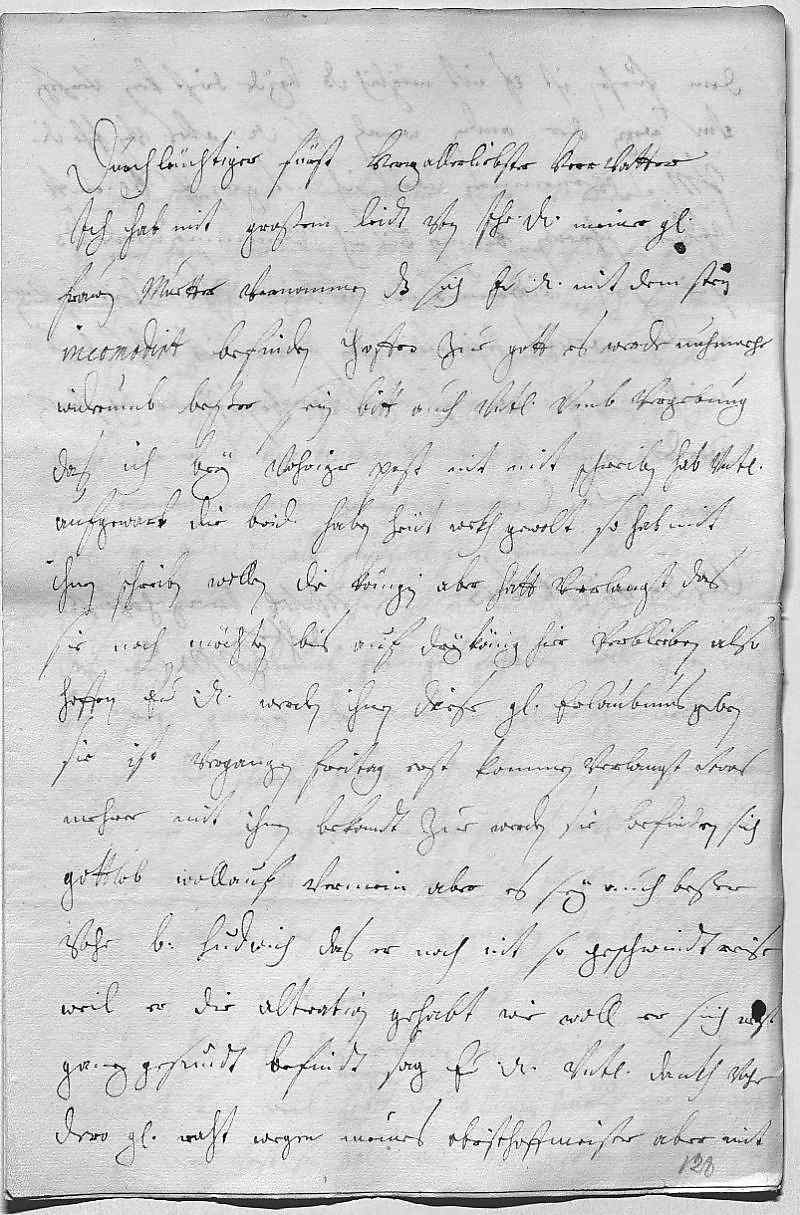 Durchleüchtiger fürst Vorallerliebster Herr Vatter
Ich hab mit großem leidt von Ihr: D: meiner gl:
frawen Mutter vernommen dz sich Eu: D: mit dem stein
incomodirt befinden hoffen zue gott es werde nuhmehr
widerumb besser sein bitt auch Untl: umb Vergebung
das ich bey voriger post nit mit schreiben hab Untl:
aufgewart die beid: haben heüt wekh gewolt so hab mit
ihnen schreiben wollen die königin aber hatt verlangt das
sie noch möchten bis auf drykönig hier verbleiben also
hoffen Eu: D: werden ihnen diese gl: erlaubnus geben
sie ist vergangen freitag erst kommen verlangt etwas
mehrer mit ihnen bekandt zue werden sie befinden sich
gottlob wollauf vermein aber es sey auch besser
vohr b: Ludwich das er noch nit so geschwindt reise
weil er die altration gehabt wie woll er sich
ganz gesundt befindt sag Eu: D: Untl: dankh vohr
dero gl: raht wegen meines obristhoffmeister aber mit
128